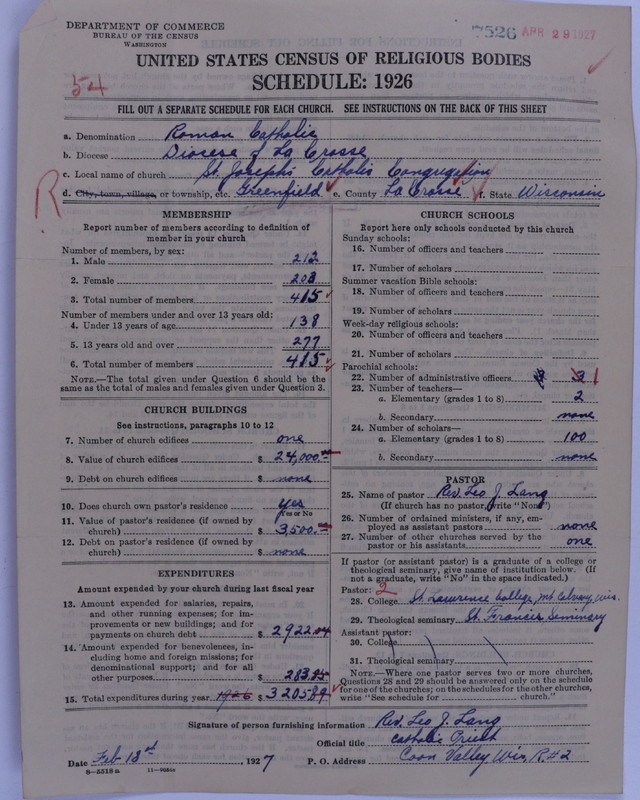 DEPARTMENT OF COMMERCE
BUREAU OF THE CENSUS
WASHINGTON
7526 APR 29 1927
UNITED STATES CENSUS OF RELIGIOUS BODIES
SCHEDULE: 1926
54
FILL OUT A SEPARATE SCHEDULE FOR EACH CHURCH. SEE INSTRUCTIONS ON THE BACK OF THIS SHEET
a. Denomination Roman Catholic
b. Diocese Diocese of La Crosse
c. Local name of church St. Joseph's Catholic Congregation
R
d. City, town, village, or township, etc. Greenfield e. County La Crosse f. State Wisconsin
MEMBERSHIP
Report number of members according to definition of
member in your church
Number of members, by sex:
1. Male 212
2. Female 203
3. Total number of members 415
Number of members under and over 13 years old:
4. Under 13 years of age 138
5. 13 years old and over 277
6. Total number of members 415
NOTE.—The total given under Question 6 should be the
same as the total of males and females given under Question 3.
CHURCH BUILDINGS
See instructions, paragraphs 10 to 12
7. Number of church edifices one
8. Value of church edifices $ 24,000.
9. Debt on church edifices $ none
10. Does church own pastor's residence yes
Yes or No
11. Value of pastor's residence (if owned by
church) $ 3,500.
12. Debt on pastor's residence (if owned by
church) $ none
EXPENDITURES
Amount expended by your church during last fiscal year
13. Amount expended for salaries, repairs,
and other running expenses; for im-
provements or new buildings; and for
payments on church debt $ 2922.04
14. Amount expended for benevolences, in-
cluding home and foreign missions; for
denominational support; and for all
other purposes $ 283.85
15. Total expenditures during year 1926 $ 3205.89
CHURCH SCHOOLS
Report here only schools conducted by this church
Sunday schools:
16. Number of officers and teachers
17. Number of scholars
Summer vacation Bible schools:
18. Number of officers and teachers
19. Number of scholars
Week-day religious schools:
20. Number of officers and teachers
21. Number of scholars
Parochial schools:
22. Number of administrative officers 3 3 1
23. Number of teachers—
a. Elementary (grades 1 to 8) 2
b. Secondary none
24. Number of scholars—
a. Elementary (grades 1 to 8) 100
b. Secondary none
PASTOR
25. Name of pastor Rev. Leo J. Lang
(If church has no pastor, write "None")
26. Number of ordained ministers, if any, em-
ployed as assistant pastors none
27. Number of other churches served by the
pastor or his assistants one
If pastor (or assistant pastor) is a graduate of a college or
theological seminary, give name of institution below. (If
not a graduate, write "No" in the space indicated.)
Pastor: 2
28. College St. Lawrence College, Mt. Calvary, Wis.
29. Theological seminary St. Francis Seminary
Assistant pastor:
30. College
31. Theological seminary
NOTE.—Where one pastor serves two or more churches,
Questions 28 and 29 should be answered only on the schedule
for one of the churches; on the schedules for the other churches,
write "See schedule for church."
Signature of person furnishing information Rev. Leo J. Lang
Official title Catholic Priest
Date Feb 18th, 1927 P. O. Address Coon Valley Wis, R.#2
8—5518 a